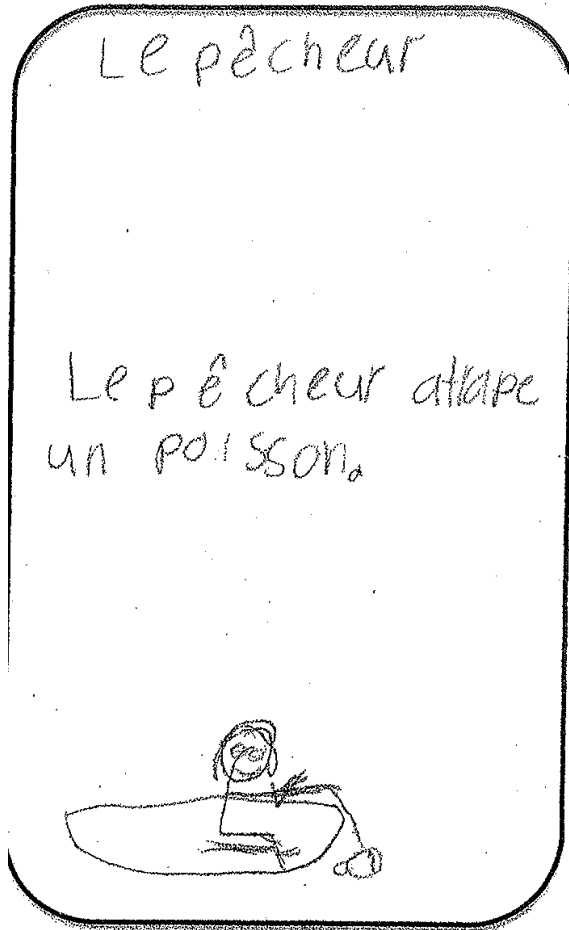 Le pêcheur
Le pêcheur atrape
un poisson.